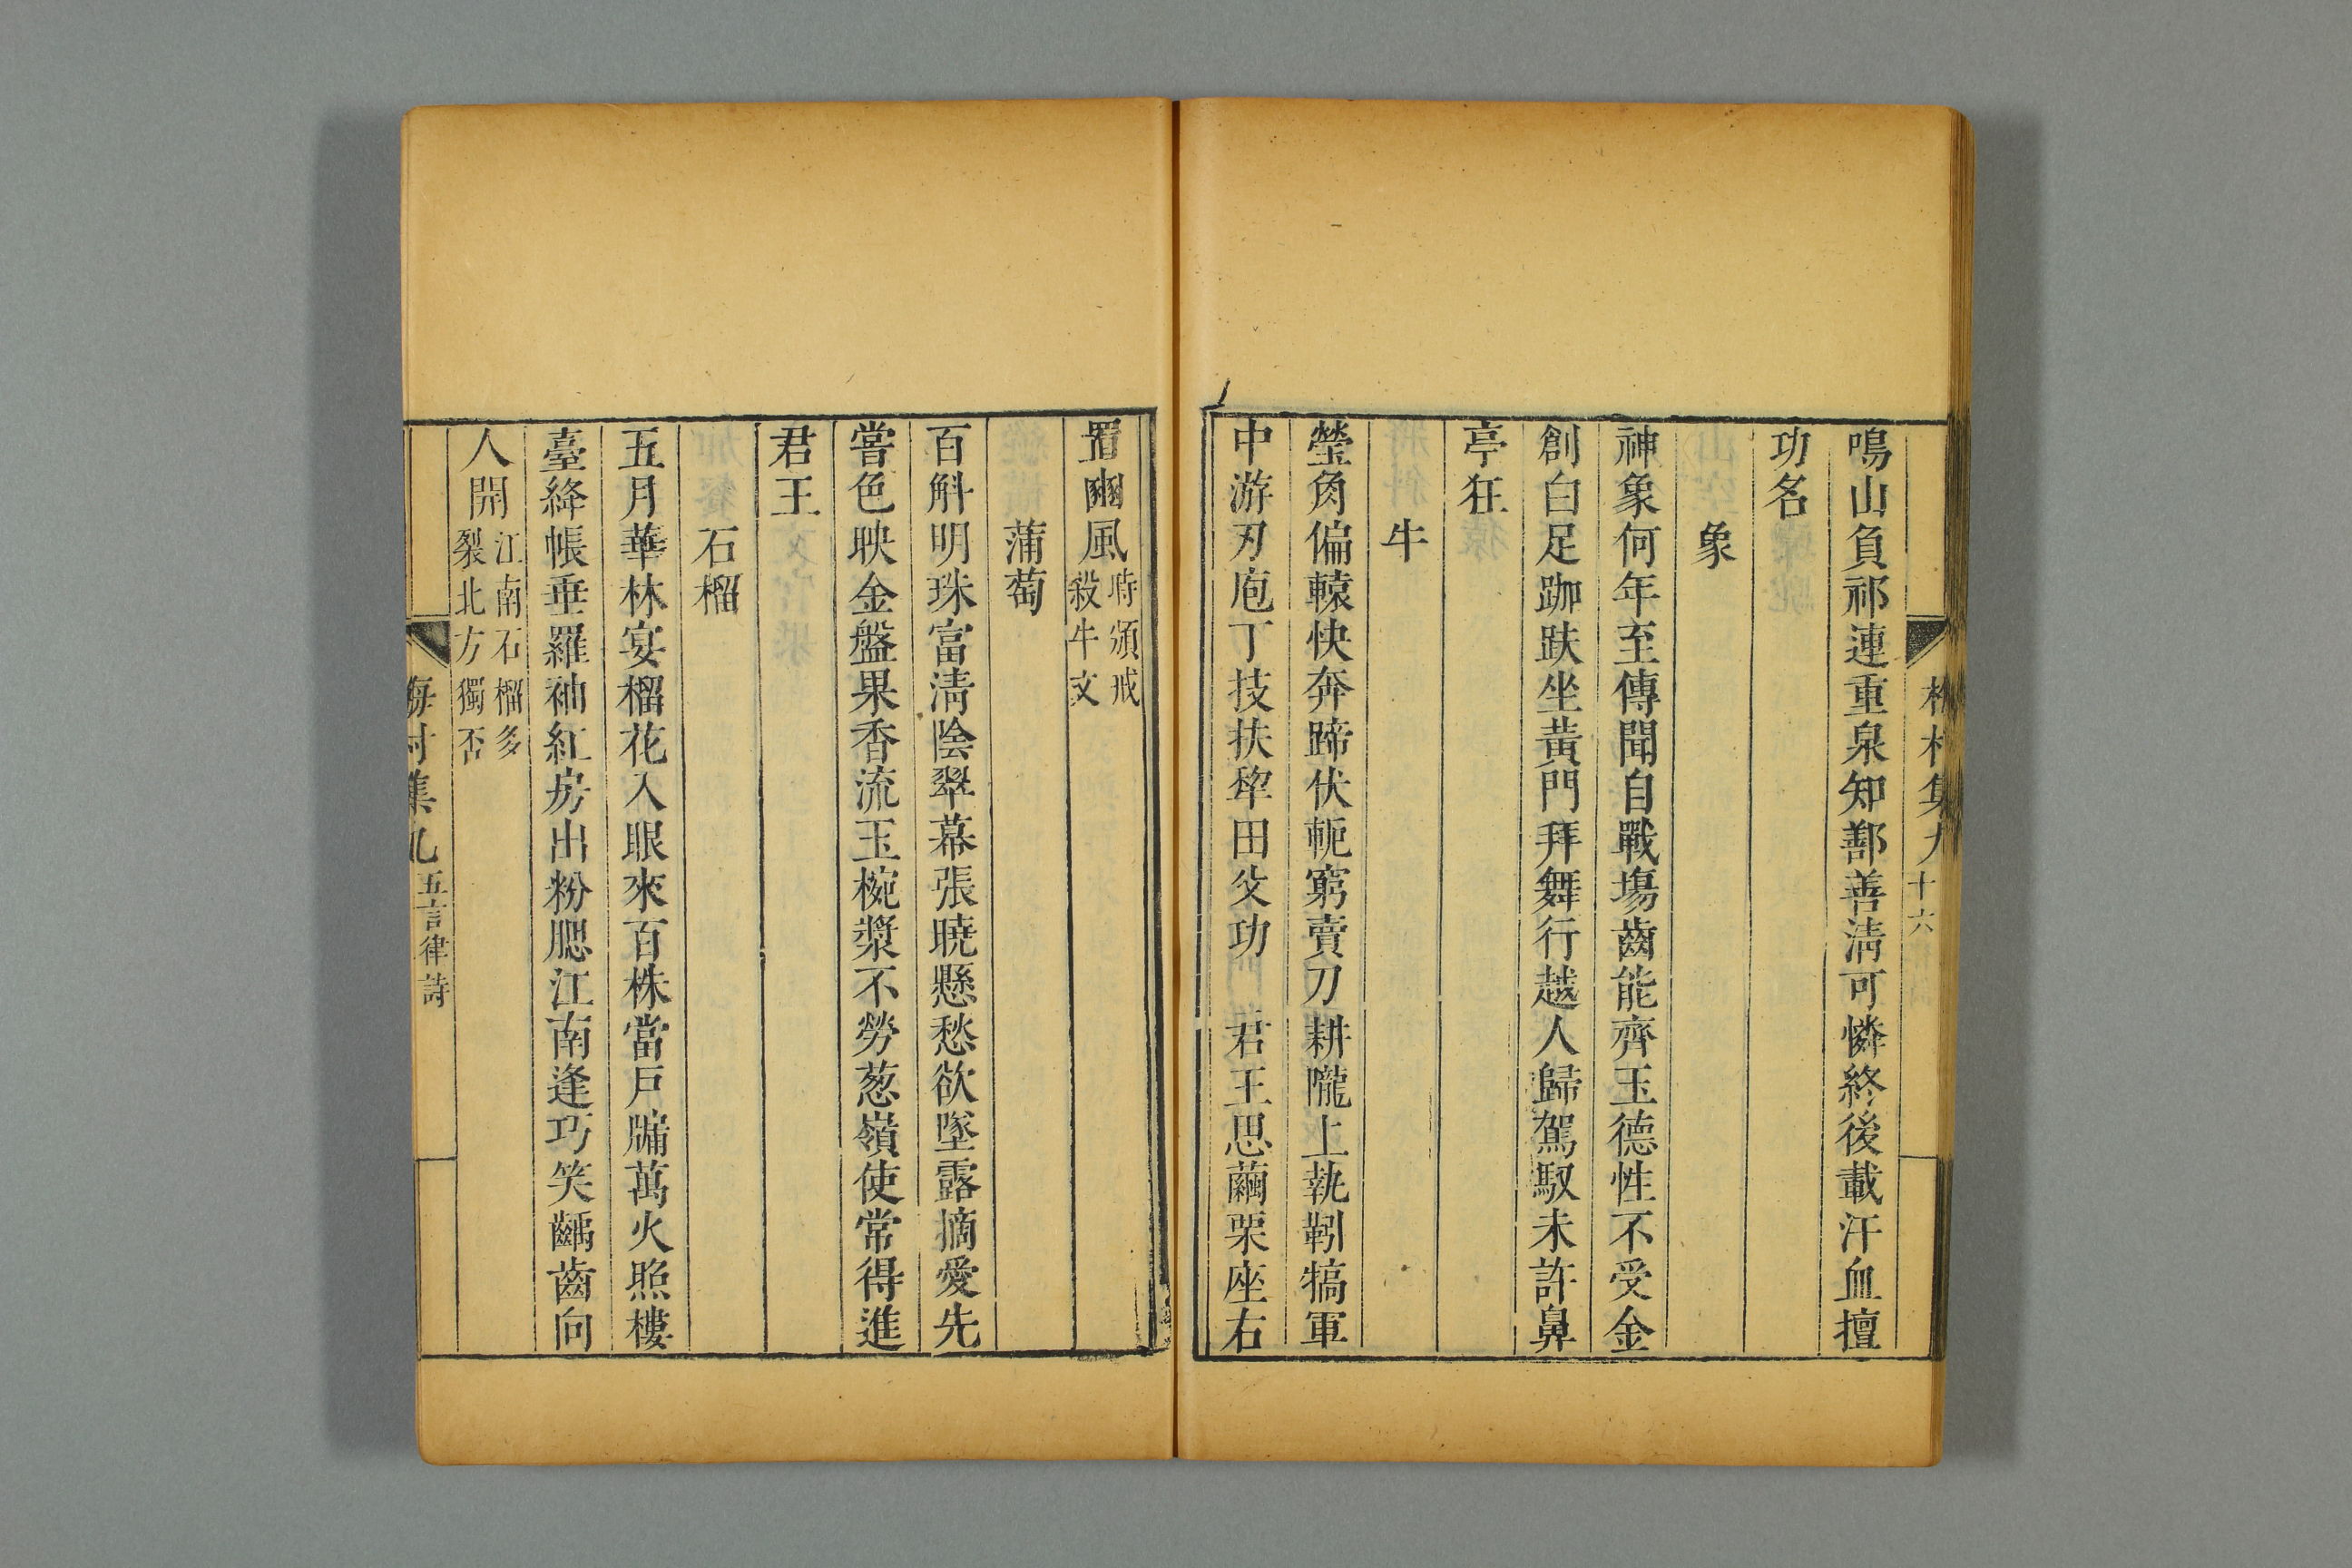 梅村集九 十六
鳴山負祁連重泉知鄯善淸可憐終後載汗血擅
功名
象
神象何年至傳聞自戰塲齒能齊玉德性不受金
創白足跏趺坐黃門拜舞行越人歸駕馭未許鼻
亭狂
牛
瑩角偏轅快奔蹄伏軛窮賣刀耕隴上執靷犒軍
中游刃庖丁技扶犂田父功 君王思繭栗座右
置豳風時頒戒
殺牛文
蒲萄
百斛明珠富淸陰翠幕張曉懸愁欲墜露摘愛先
嘗色映金盤果香流玉椀漿不勞葱嶺使常得進
君王
石榴
五月華林宴榴花入眼來百株當戶牖萬火照樓
臺絳帳垂羅袖紅房出粉腮江南逢巧笑齲齒向
人開江南石榴多
裂北方獨否
梅村集九 五言律詩